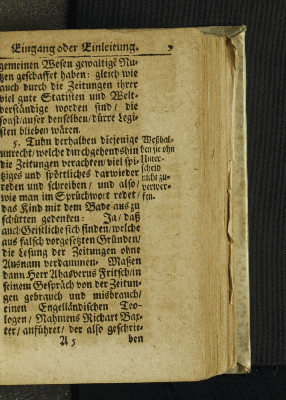 Eingang oder Einleitung. 9
gemeinen Wesen gewaltige Nu-
tzen geschaffet haben: gleich wie
auch durch die Zeitungen ihrer
viel gute Statisten und Welt-
verständige worden sind/ die
sonst/ausser denselben/dürre Legi-
sten blieben wären.
5. Tuhn derhalben diejenige
unrecht/welche durchgehends hin
die Zeitungen verachten/viel spi-
tziges und spöttliches darwieder
reden und schreiben/ und also/
wie man im Sprüchwort redet/
das Kind mit dem Bade aus zu
schütten gedenken: Ja/ daß
auch Geistliche sich finden/welche
aus falsch vorgesetzten Gründen/
die Lesung der Zeitungen ohne
Ausnam verdammen. Maßen
dann Herr Ahasverus Fritsch/in
seinem Gespräch von der Zeitun-
gen gebrauch und misbrauch/
einen Engelländischen Teo-
logen/ Nahmens Richart Bax-
ter/anführet/ der also geschrie-
A 5 ben
Weßhal-
ben sie ohn
Unter-
scheid
nicht zu-
verwer-
fen.